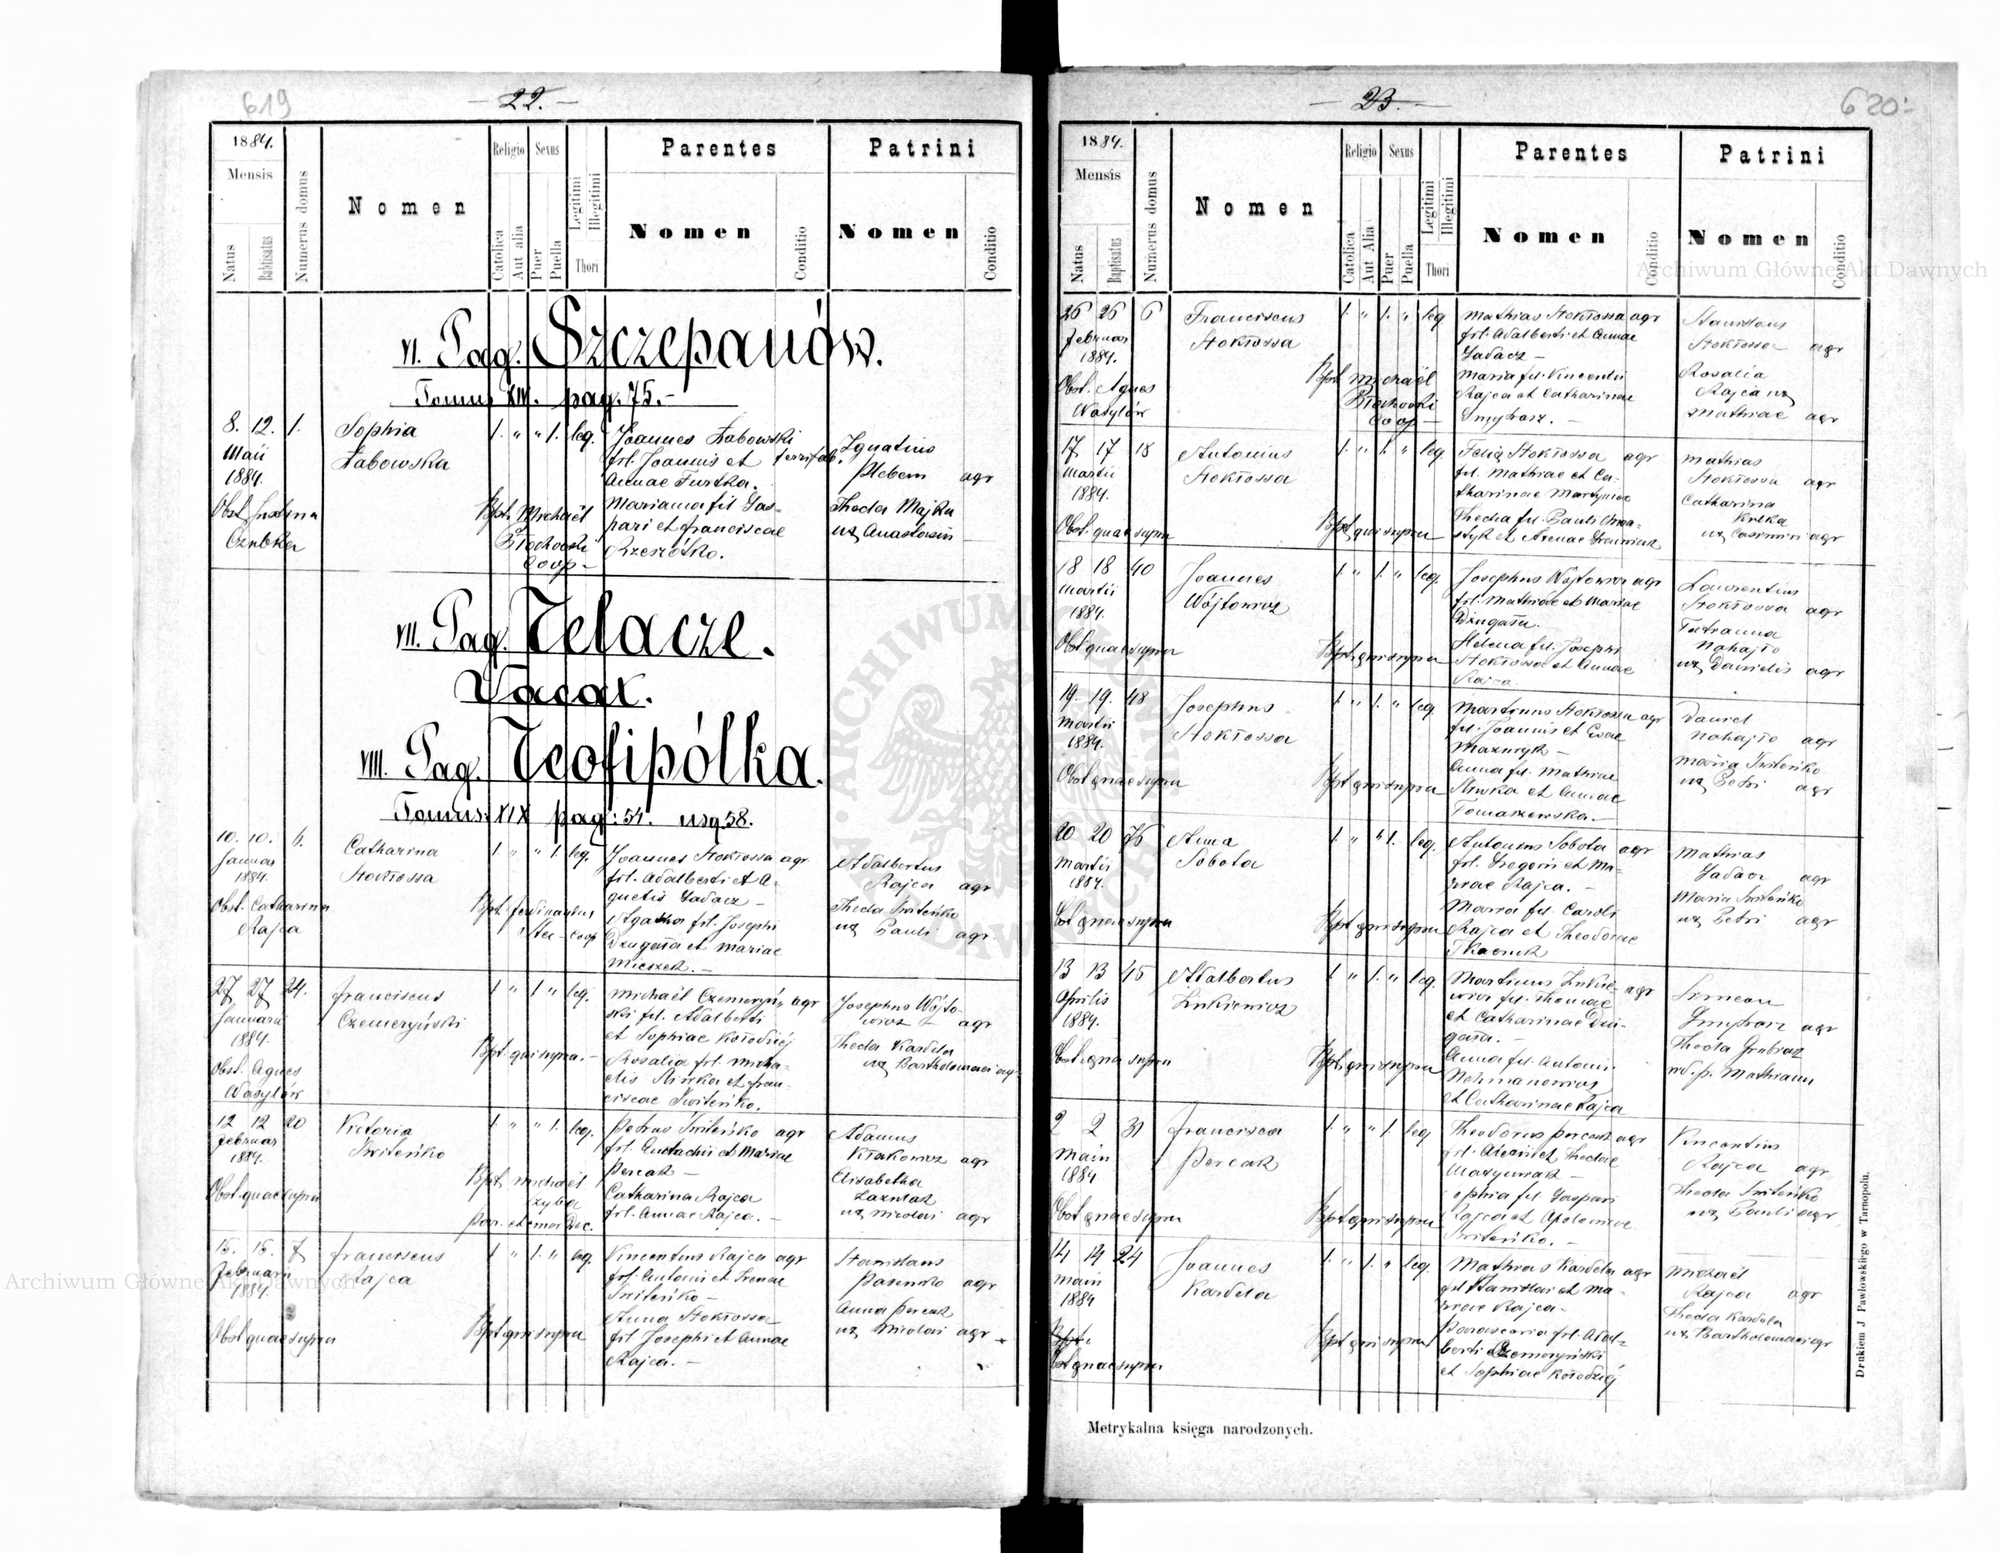 619
- 22. -
1884.
Mensis
Natus
Babtisatus
Numerus domus
Nomen
Religio
Catolica
Aut alia
Sexus
Puer
Puella
Legitimi
Illegitimi
Thori
Parentes
Nomen
Conditio
Patrini
Nomen
Conditio
VI. Pag. Szczepanów.
Tomus XIV. pag. 75. -
8. 12. 1.
Maii
1884.
Sophia
Łabowska
1. " " 1. leg.
Joannes Łabowski
fil. Joannis et
Annae Furtka.
Marianna fil. Gas-
pari et Franciscae
Ignatius
Plebem agr
Thecla Majka
ux Anastasii
Bpt. Michaël
Błochowski
Coop -
VII. Pag. Telacze.
Vacat.
VIII. Pag. Teofipólka.
Tomus XIX pag: 54. usq. 58.
10. 10. 6.
Januar
1884.
Obst. Catharina
Rajca
Catharina
Stokłossa
1. " " 1. leg.
Joannes Stokłossa agr.
fil. Adalberti et A-
gnetis Gadacz -
Agatha fil. Josephi
Dzugała et Mariae
Mieszek. -
Adalbertus
Rajca agr
Thecla Switeńko
ux Pauli agr.
27 27 24.
Januarii
1884.
Obst. Agnes
Wasylów
Franciscus
Czemeryński
1. " 1. " leg.
Bpt. qui supra. -
Michaël Czemeryń- agr
ski fil. Adalberti
et Sophiae Kołodziej
Rosalia fil. Micha-
elis Śliwka et Fran-
ciscae Switeńko.
Josephus Wójto-
wicz agr
Thecla Kardela
ux Bartholomaei agr
12 12 20
Februar
1884.
Obst. quae supra
Victoria
Switeńko
1. " " 1. leg.
Bpt. Michaël
Petrus Switeńko agr
fil. Eustachii et Mariae
Percak -
Catharina Rajca
fil. Annae Rajca. -
Adamus
Kłakowicz agr
Elisabetha
ux Nicolai agr
15. 15. 7
Februarii
1884.
Obst quae supra
Franciscus
Rajca
1. " 1. " leg.
Bpt qui supra
Vincentius Rajca agr
fil. Antonii et Irenae
Switeńko -
Anna Stokłossa
fil Josephi et Annae
Rajca. -
Stanislaus
agr
Anna Percak
ux Nicolai agr
620
- 23. -
1884.
Mensis
Natus
Baptisatus
Numerus domus
Nomen
Religio
Catolica
Aut Alia
Sexus
Puer
Puella
Legitimi
Illegitimi
Thori
Parentes
Nomen
Conditio
Patrini
Nomen
Conditio
26 26 6
Februar
1884.
Obst. Agnes
Wasylów
Franciscus
Stokłossa
1. " 1. " leg
Bpt. Michaël
Błochowski
Coop -
Mathias Stokłossa agr
fil. Adalberti et Annae
Gadacz -
Maria fil. Vincentii
Rajca et Catharinae
Smyhasz. -
Stanislaus
Stokłossa agr
Rosalia
Rajca ux
Mathiae agr
17 17 18
Martii
1884.
Obst. quae supra
Antonius
Stokłossa
1. " 1. " leg
Bpt qui supra
Felix Stokłossa agr
fil. Mathiae et Ca-
tharinae Martyniec
Mathias
Stokłossa agr
Catharina
ux Casimiri agr
18 18 40
Martii
1884.
Obst quae supra
Joannes
Wójtowicz
1. " 1. " leg.
Bpt. qui supra
Josephus Wojtowicz agr
fil. Mathiae et Mariae
Dzugała.
Helena fil. Josephi
Stokłossa et Annae
Rajca
Laurentius
Stokłossa agr
Tatianna
Nahajło
ux Danielis agr
19. 19. 48
Martii
1884.
Obst quae supra
Josephus
Stokłossa
1. " 1. " leg.
Bpt qui supra
Martinus Stokłossa agr
fil. Joannis et Evae
Mazuryk -
Anna fil. Mathiae
Śliwka et Annae
Tomaszewska. -
Daniel
Nahajło agr
Maria Switeńko
ux Petri agr
20 20 76
Martii
1884.
Obst quae supra
Anna
Sobota
1. " " 1. leg.
Bpt qui supra
Antonius Sobota agr
fil. Gregorii et Ma-
riae Rajca. -
Maria fil. Caroli
Rajca et Theodorae
Tkaczuk
Mathias
Gadacz agr
Maria Switeńko
ux Petri agr
13 13 45
Aprilis
1884.
Obst. quae supra
Adalbertus
Zinkiewicz
1. " 1. " leg.
Bpt. qui supra
Martinus Zinkie- agr
wicz fil. Thomae
et Catharinae Dzu-
gała. -
Anna fil. Antonii
et Catharinae Rajca
Simeon
Smyhasz agr
2 2 31
Maii
1884
Obst quae supra
Francisca
Percak
1. " " 1. leg
Bpt qui supra
Theodorus Percak agr
Sophia fil. Gaspari
Rajca et Apoloniae
Switeńko. -
Vincentius
Rajca agr
Thecla Switeńko
ux Pauli agr
14 14 24
Maii
1884
Obst quae supra
Joannes
Kardela
1. " 1. " leg
Bpt qui supra
Mathias Kardela agr
fil Stanislai et Ma-
riae Rajca -
Parascevia fil. Adal-
berti Czemeryński
et Sophiae Kołodziej
Michaël
Rajca agr
Thecla Kardela
ux Bartholomaei agr
Metrykalna księga narodzonych.
Drukiem J Pawłowskiego w Tarnopolu.
Archiwum Główne Akt Dawnych
Archiwum Główne Akt Dawnych